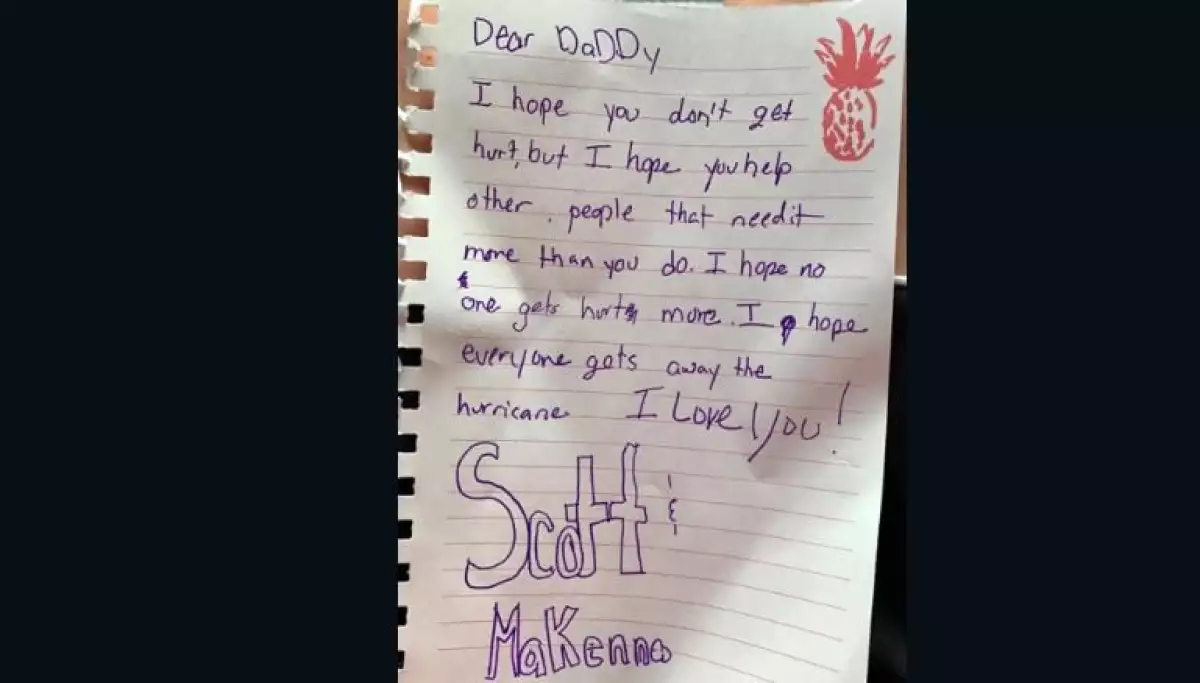 Dear DaDDy
I hope you don't get
hurt, but I hope you help
other . people that need it
more than you do. I hope no
one gets hurt more. I hope
everyone gets away the
hurricane I Love you!
Scott &
MaKenna